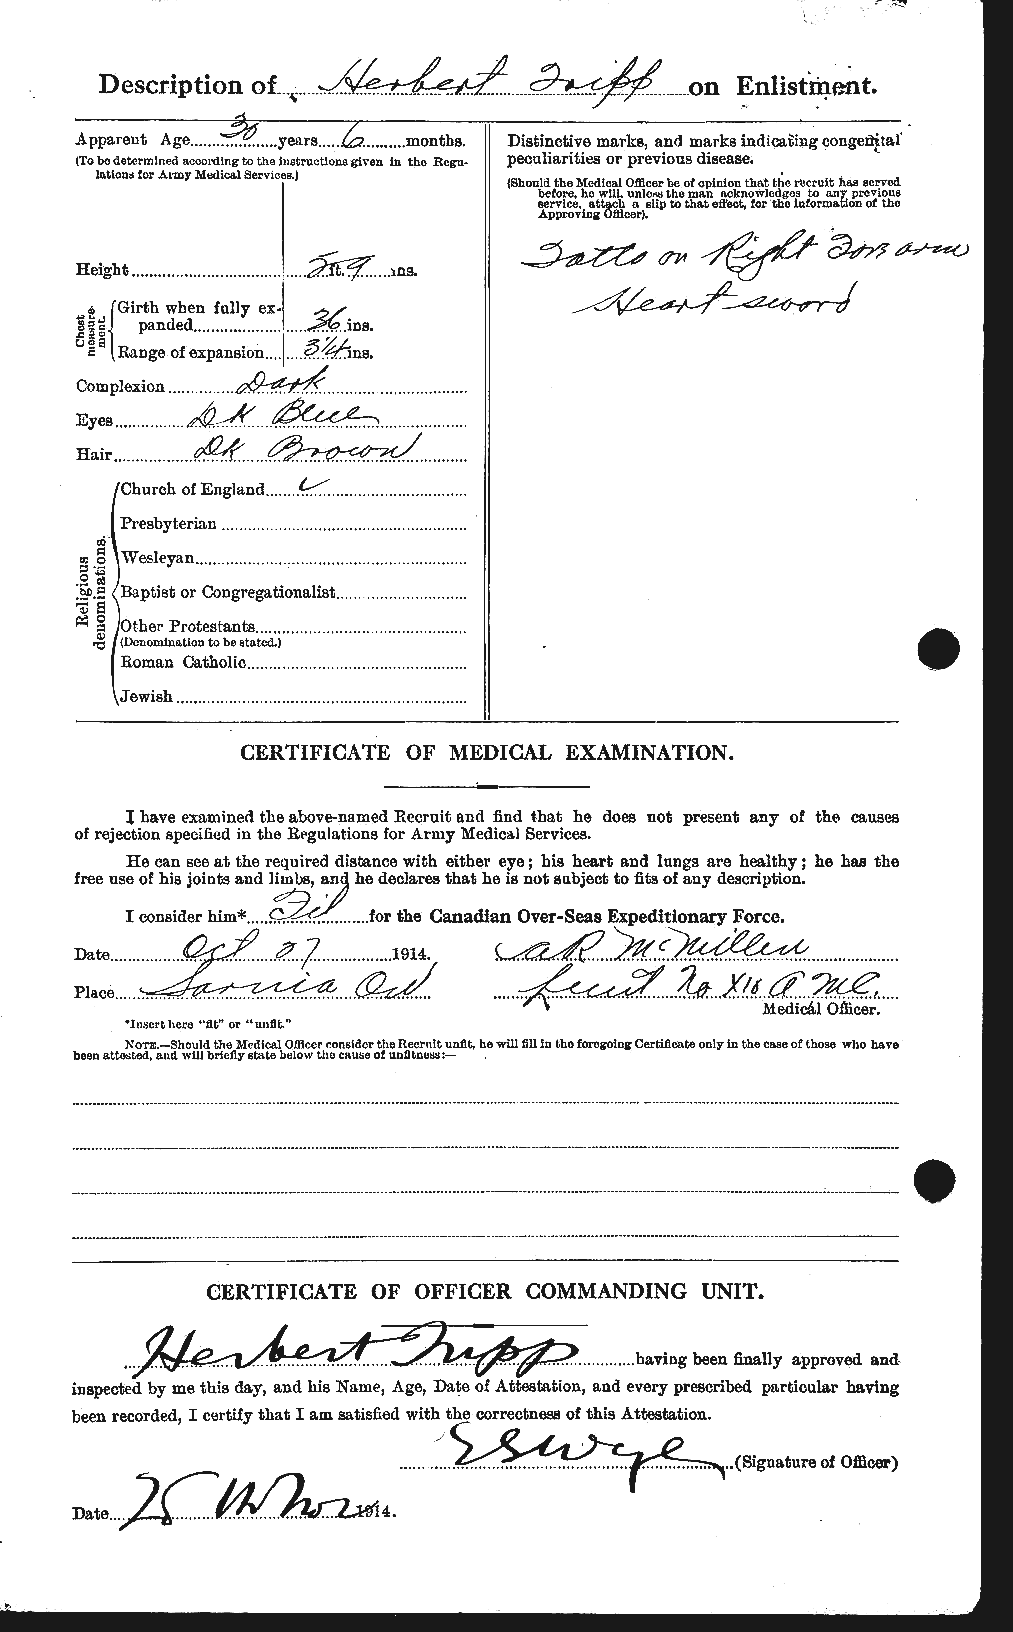 Description of Herbert Tripp on Enlistment.
Apparent Age 30 years 6 months.
(To be determined according to the instructions given in the Regu-
lations for Army Medical Services.)
Height 5 ft. 9 ins.
Chest measure-ment.
Girth when fully ex-
panded 36 ins.
Range of expansion 3 1/4 ins.
Complexion Dark
Eyes DK Blue
Hair Dk Brown
Religious denominations.
Church of England ✓
Presbyterian
Wesleyan
Baptist or Congregationalist
Other Protestants
(Denomination to be stated.)
Roman Catholic
Jewish
Distinctive marks, and marks indicating congenital
peculiarities or previous disease.
(Should the Medical Officer be of opinion that the recruit has served
before, he will, unless the man acknowledges to any previous
service, attach a slip to that effect, for the information of the
Approving Officer).
Tatto on Right Forearm
Heart sword
CERTIFICATE OF MEDICAL EXAMINATION.
I have examined the above-named Recruit and find that he does not present any of the causes
of rejection specified in the Regulations for Army Medical Services.
He can see at the required distance with either eye; his heart and lungs are healthy; he has the
free use of his joints and limbs, and he declares that he is not subject to fits of any description.
I consider him* Fit for the Canadian Over-Seas Expeditionary Force.
Date Oct 27 1914. A R McMillen
Place Sarnia Ont Lieut No XV8 A M C.
Medical Officer.
*Insert here "fit" or "unfit."
NOTE.—Should the Medical Officer consider the Recruit unfit, he will fill in the foregoing Certificate only in the case of those who have
been attested, and will briefly state below the cause of unfitness:—
CERTIFICATE OF OFFICER COMMANDING UNIT.
Herbert Tripp having been finally approved and
inspected by me this day, and his Name, Age, Date of Attestation, and every prescribed particular having
been recorded, I certify that I am satisfied with the correctness of this Attestation.
E S Wyle (Signature of Officer)
Date 25 th Nov 1914.